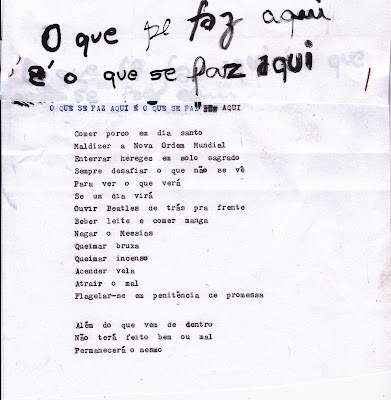 O que se faz aqui
é o que se paz aqui
O QUE SE FAZ AQUI É O QUE SE PAZ AQUI
Comer porco em dia santo
Maldizer a Nova Ordem Mundial
Enterrar hereges em solo sagrado
Sempre desafiar o que não se vê
Para ver o que verá
Se um dia virá
Ouvir Beatles de trás pra frente
Beber leite e comer manga
Negar o Messias
Queimar bruxa
Queimar incenso
Acender vela
Atrair o mal
Flagelar-se em penitência de promessa
Além do que vem de dentro
Não terá feito bem ou mal
Permanecerá o mesmo